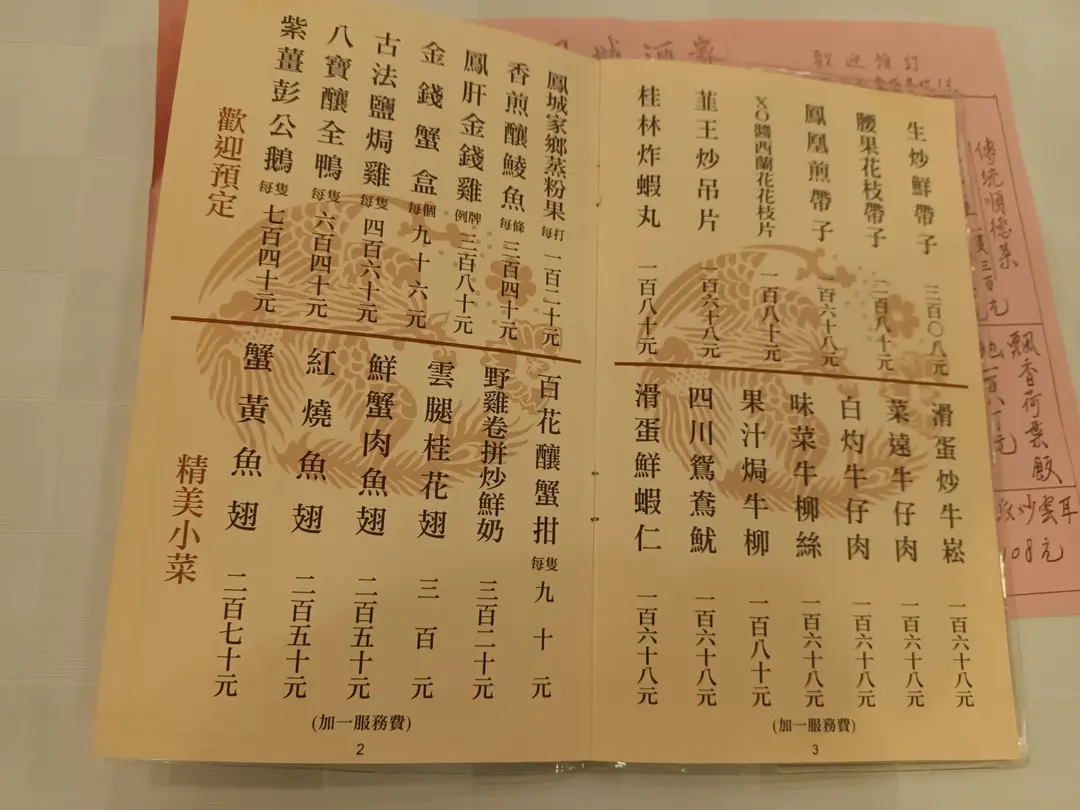 歡迎預定
紫薑彭公鵝 每隻 七百四十元
八寶釀全鴨 每隻 六百四十元
古法鹽焗雞 每隻 四百六十元
金錢蟹盒 每個 九十六元
鳳肝金錢雞 例牌 三百八十元
香煎釀鯪魚 每條 三百四十元
鳳城家鄉蒸粉果 每打 一百二十元
精美小菜
蟹黃魚翅 二百七十元
紅燒魚翅 二百五十元
鮮蟹肉魚翅 二百五十元
雲腿桂花翅 三百元
野雞卷拼炒鮮奶 三百二十元
百花釀蟹拑 每隻 九十元
(加一服務費)
2
桂林炸蝦丸 一百八十元
韮王炒吊片 一百六十八元
XO醬西蘭花花枝片 一百八十元
鳳凰煎帶子 一百六十八元
腰果花枝帶子 百八十元
生炒鮮帶子 百〇八元
滑蛋鮮蝦仁 一百六十八元
四川鴛鴦魷 一百六十八元
果汁焗牛柳 一百八十元
味菜牛柳絲 一百六十八元
白灼牛仔肉 一百六十八元
菜遠牛仔肉 一百六十八元
滑蛋炒牛崧 一百六十八元
(加一服務費)
3
城酒家
歡迎預訂
傳統順德菜
三百元
飄香荷葉飯
炒雲耳
108元